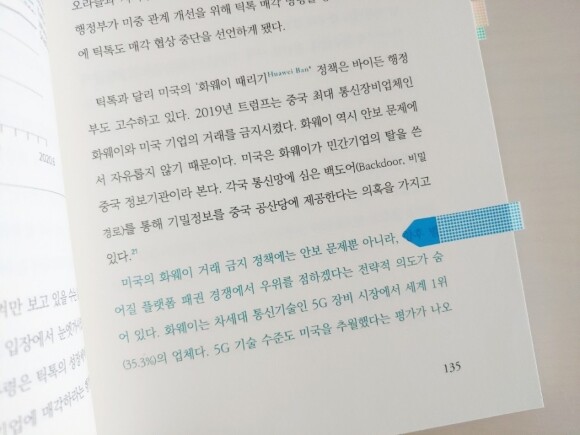 행정부가 미중 관계 개선을 위해 틱톡 매각
에 틱톡도 매각 협상 중단을 선언하게 됐다.
틱톡과 달리 미국의 '화웨이 때리기Huawei Ban' 정책은 바이든 행정
부도 고수하고 있다. 2019년 트럼프는 중국 최대 통신장비업체인
화웨이와 미국 기업의 거래를 금지시켰다. 화웨이 역시 안보 문제에
서 자유롭지 않기 때문이다. 미국은 화웨이가 민간기업의 탈을 쓴
중국 정보기관이라 본다. 각국 통신망에 심은 백도어(Backdoor, 비밀
경로)를 통해 기밀정보를 중국 공산당에 제공한다는 의혹을 가지고
있다.21
미국의 화웨이 거래 금지 정책에는 안보 문제뿐 아니라,
어질 플랫폼 패권 경쟁에서 우위를 점하겠다는 전략적 의도가 숨
어 있다. 화웨이는 차세대 통신기술인 5G 장비 시장에서 세계 1위
(35.3%)의 업체다. 5G 기술 수준도 미국을 추월했다는 평가가 나오
135
보고 있을
입장에서
틱톡의
매각하라는